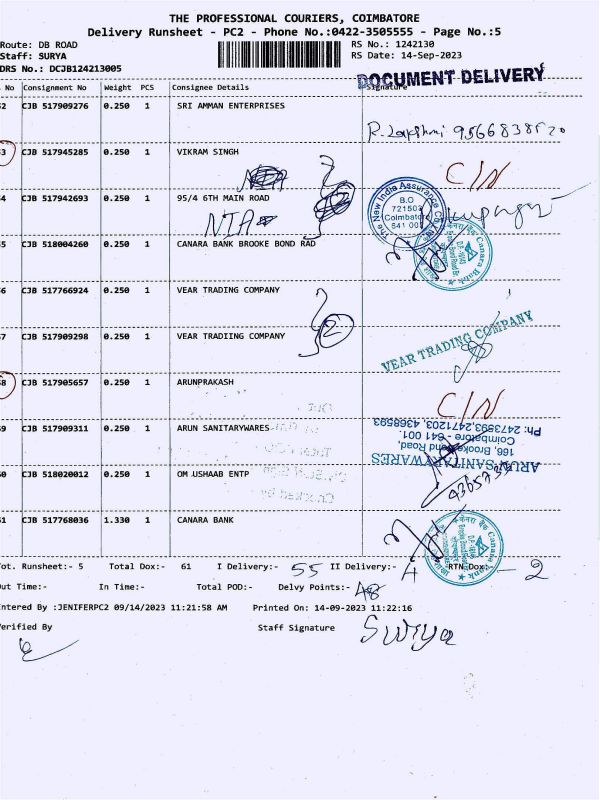 THE PROFESSIONAL COURIERS, COIMBATORE
Delivery Runsheet - PC2 - Phone No.:0422-3505555 - Page No.:5
Route: DB ROAD RS No.: 1242130
Staff: SURYA RS Date: 14-Sep-2023
DRS No.: DCJB124213005
DOCUMENT DELIVERY
No Consignment No Weight PCS Consignee Details Signature
2 CJB 517909276 0.250 1 SRI AMMAN ENTERPRISES
R. Lakshmi
3 CJB 517945285 0.250 1 VIKRAM SINGH
C/N
4 CJB 517942693 0.250 1 95/4 6TH MAIN ROAD
NIA
The New India Assurance Co.
B.O
721503
Coimbatore
641 002
5 CJB 518004260 0.250 1 CANARA BANK BROOKE BOND RAD
Canara Bank
6 CJB 517766924 0.250 1 VEAR TRADING COMPANY
7 CJB 517909298 0.250 1 VEAR TRADIING COMPANY
2
VEAR TRADING COMPANY
8 CJB 517905657 0.250 1 ARUNPRAKASH
C/N
9 CJB 517909311 0.250 1 ARUN SANITARYWARES
ARUN SANITARYWARES
166, Brooke Bond Road,
Coimbatore - 641 001.
Ph: 2473593,2471203, 4368593
0 CJB 518020012 0.250 1 OM USHAAB ENTP
1 CJB 517768036 1.330 1 CANARA BANK
Canara Bank
ot. Runsheet:- 5 Total Dox:- 61 I Delivery:- 55 II Delivery:- 4 RTN Dox:- 2
ut Time:- In Time:- Total POD:- Delvy Points:- 48
ntered By :JENIFERPC2 09/14/2023 11:21:58 AM Printed On: 14-09-2023 11:22:16
erified By Staff Signature Surya